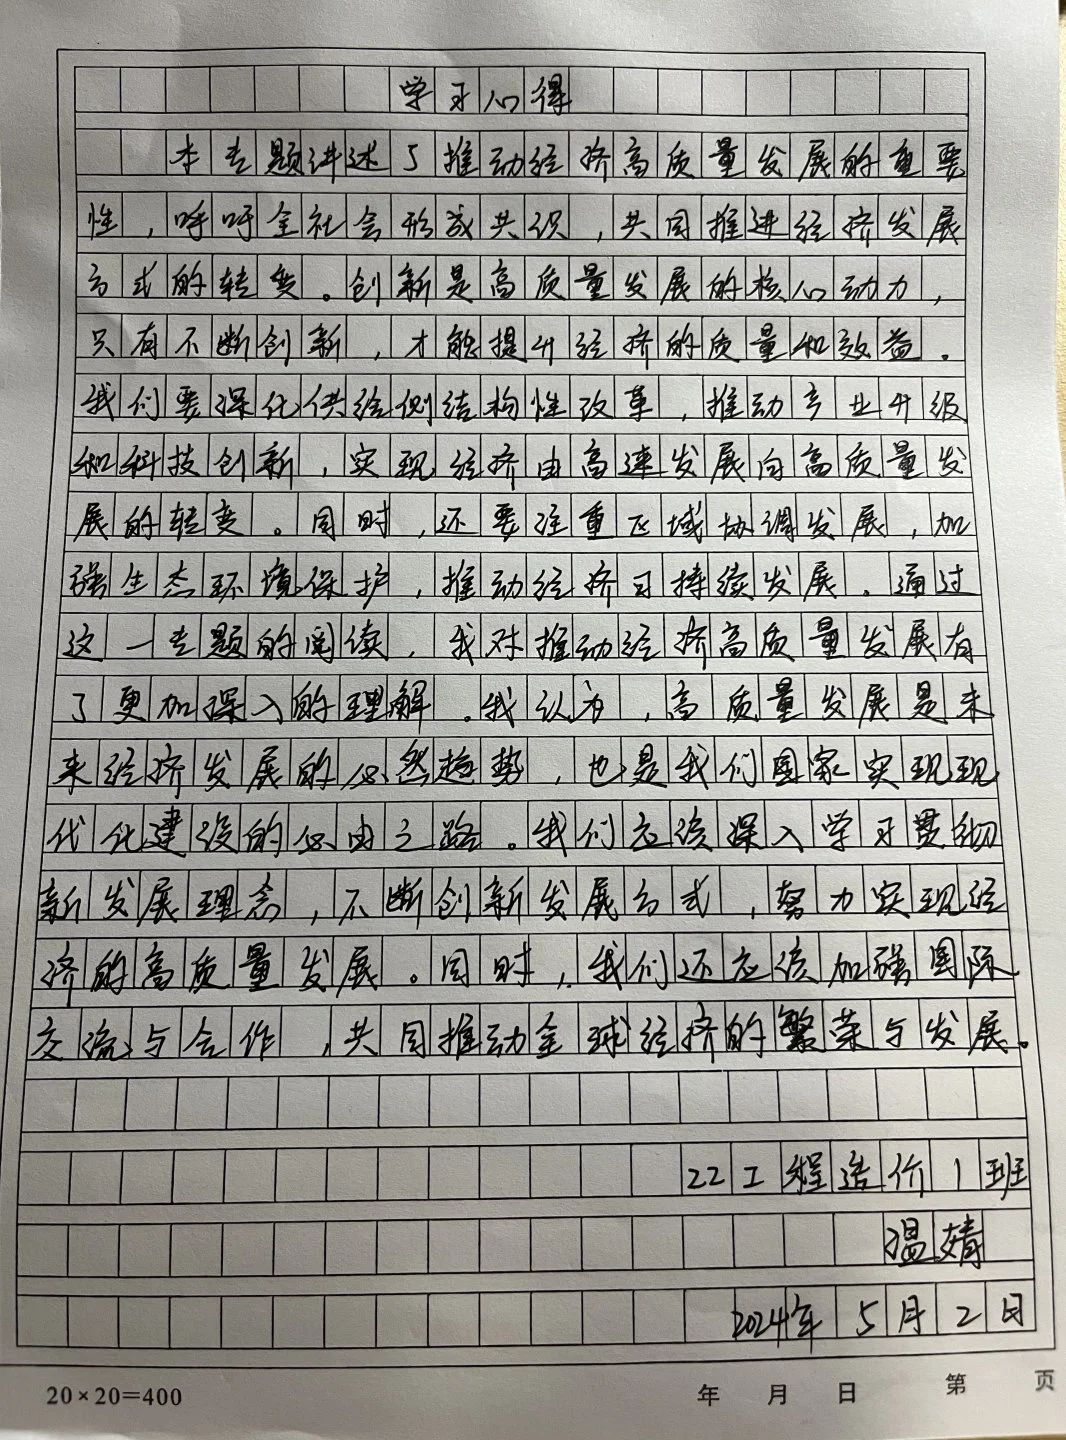 学习心得
本专题讲述了推动经济高质量发展的重要
性，呼吁全社会形成共识，共同推进经济发展
方式的转变。创新是高质量发展的核心动力，
只有不断创新，才能提升经济的质量和效益。
我们要深化供给侧结构性改革，推动产业升级
和科技创新，实现经济由高速发展向高质量发
展的转变。同时，还要注重区域协调发展，加
强生态环境保护，推动经济可持续发展。通过
这一专题的阅读，我对推动经济高质量发展有
了更加深入的理解。我认为，高质量发展是未
来经济发展的必然趋势，也是我们国家实现现
代化建设的必由之路。我们应该深入学习贯彻
新发展理念，不断创新发展方式，努力实现经
济的高质量发展。同时，我们还应该加强国际
交流与合作，共同推动全球经济的繁荣与发展。
22工程造价1班
温婧
2024年5月2日
20×20=400 年 月 日 第 页